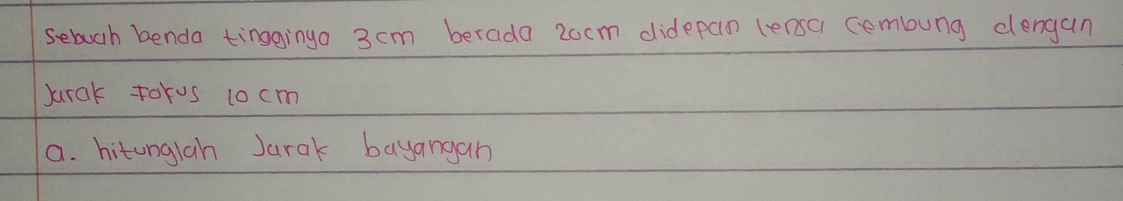 Sebuah benda tingginya 3cm berada 20cm didepan lensa cembung dengan
Jarak fokus 10 cm
a. hitunglah Jarak bayangan